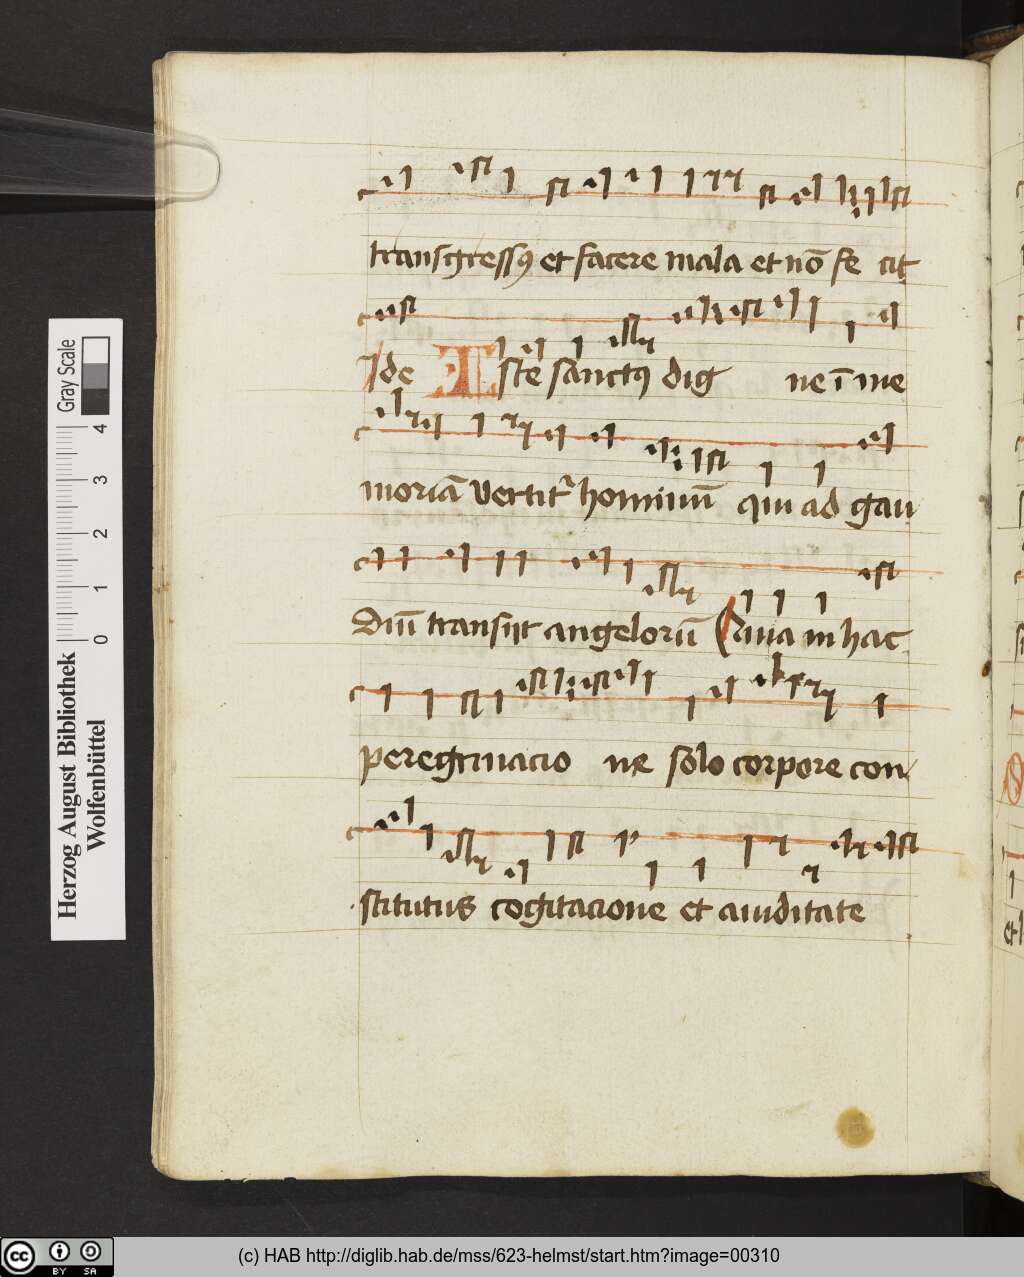 transgressꝰ et facere mala et nō fe cit
Ide Iste sanctꝰ dig ne ī me
moriā vertit᷑ hominū qui ad gau
diū transijt angelorū Quia in hac
peregrinacio ne solo corpore con
stitutus cogitacione et auiditate
Gray Scale
4
3
2
1
0
Herzog August Bibliothek
Wolfenbüttel
cc BY SA
(c) HAB http://diglib.hab.de/mss/623-helmst/start.htm?image=00310